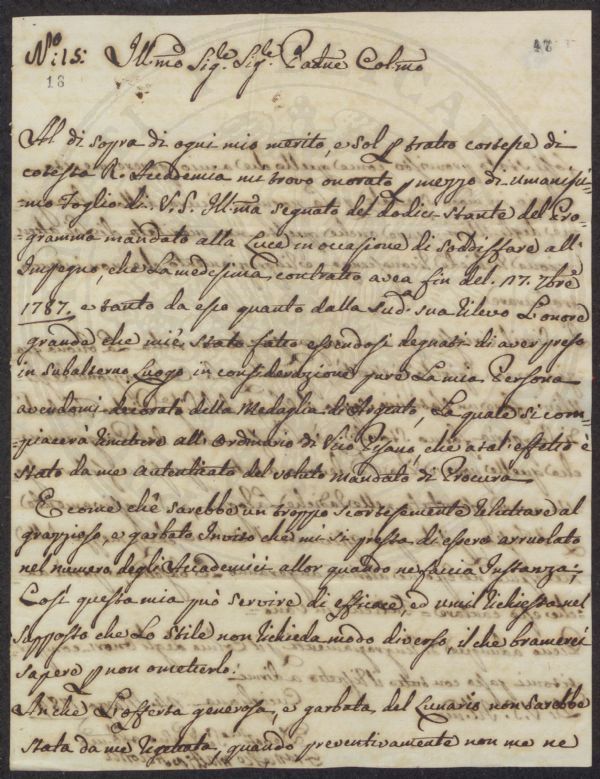 N.º 15:
18
47
Ill:mo Sig.e Sig.e Padne Col:mo
Al di sopra di ogni mio merito, e sol p tratto cortese di
cotesta R. Accademia mi trovo onorato p mezzo di umanissi-
-mo Foglio di V. S. Ill:ma segnato del dodici stante del Pro-
gramma mandato alla Luce in occasione di soddisfare all'
Impegno, che La medesima contratto avea fin del. 17. 7bre
1787. e tanto da esso quanto dalla Sud.a sua rilevo L'onore
grande che mi è stato fatto essendosi degnati di aver preso
in subalterno Luogo in considerazione pure La mia Persona
avendomi decorato della Medaglia di Argento, La quale si com-
-piacerà rimettere all'Ordinario di Vico Pisano, che a tal effetto è
stato da me autenticato del solito Mandato di Procura
E come che sarebbe un troppo scortesemente ributtare al
grazzioso, e garbato Invito che mi si presta di essere arruolato
nel numero degli Accademici allor quando ne faccia Instanza;
Così questa mia può servire di efficace, ed umil richiesta nel
supposto che Lo stile non richieda modo diverso, il che bramerei
sapere p non ometterlo.
Anche L'offerta generosa, e garbata del Lunario non sarebbe
stata da me rigettata, quando preventivamente non me ne